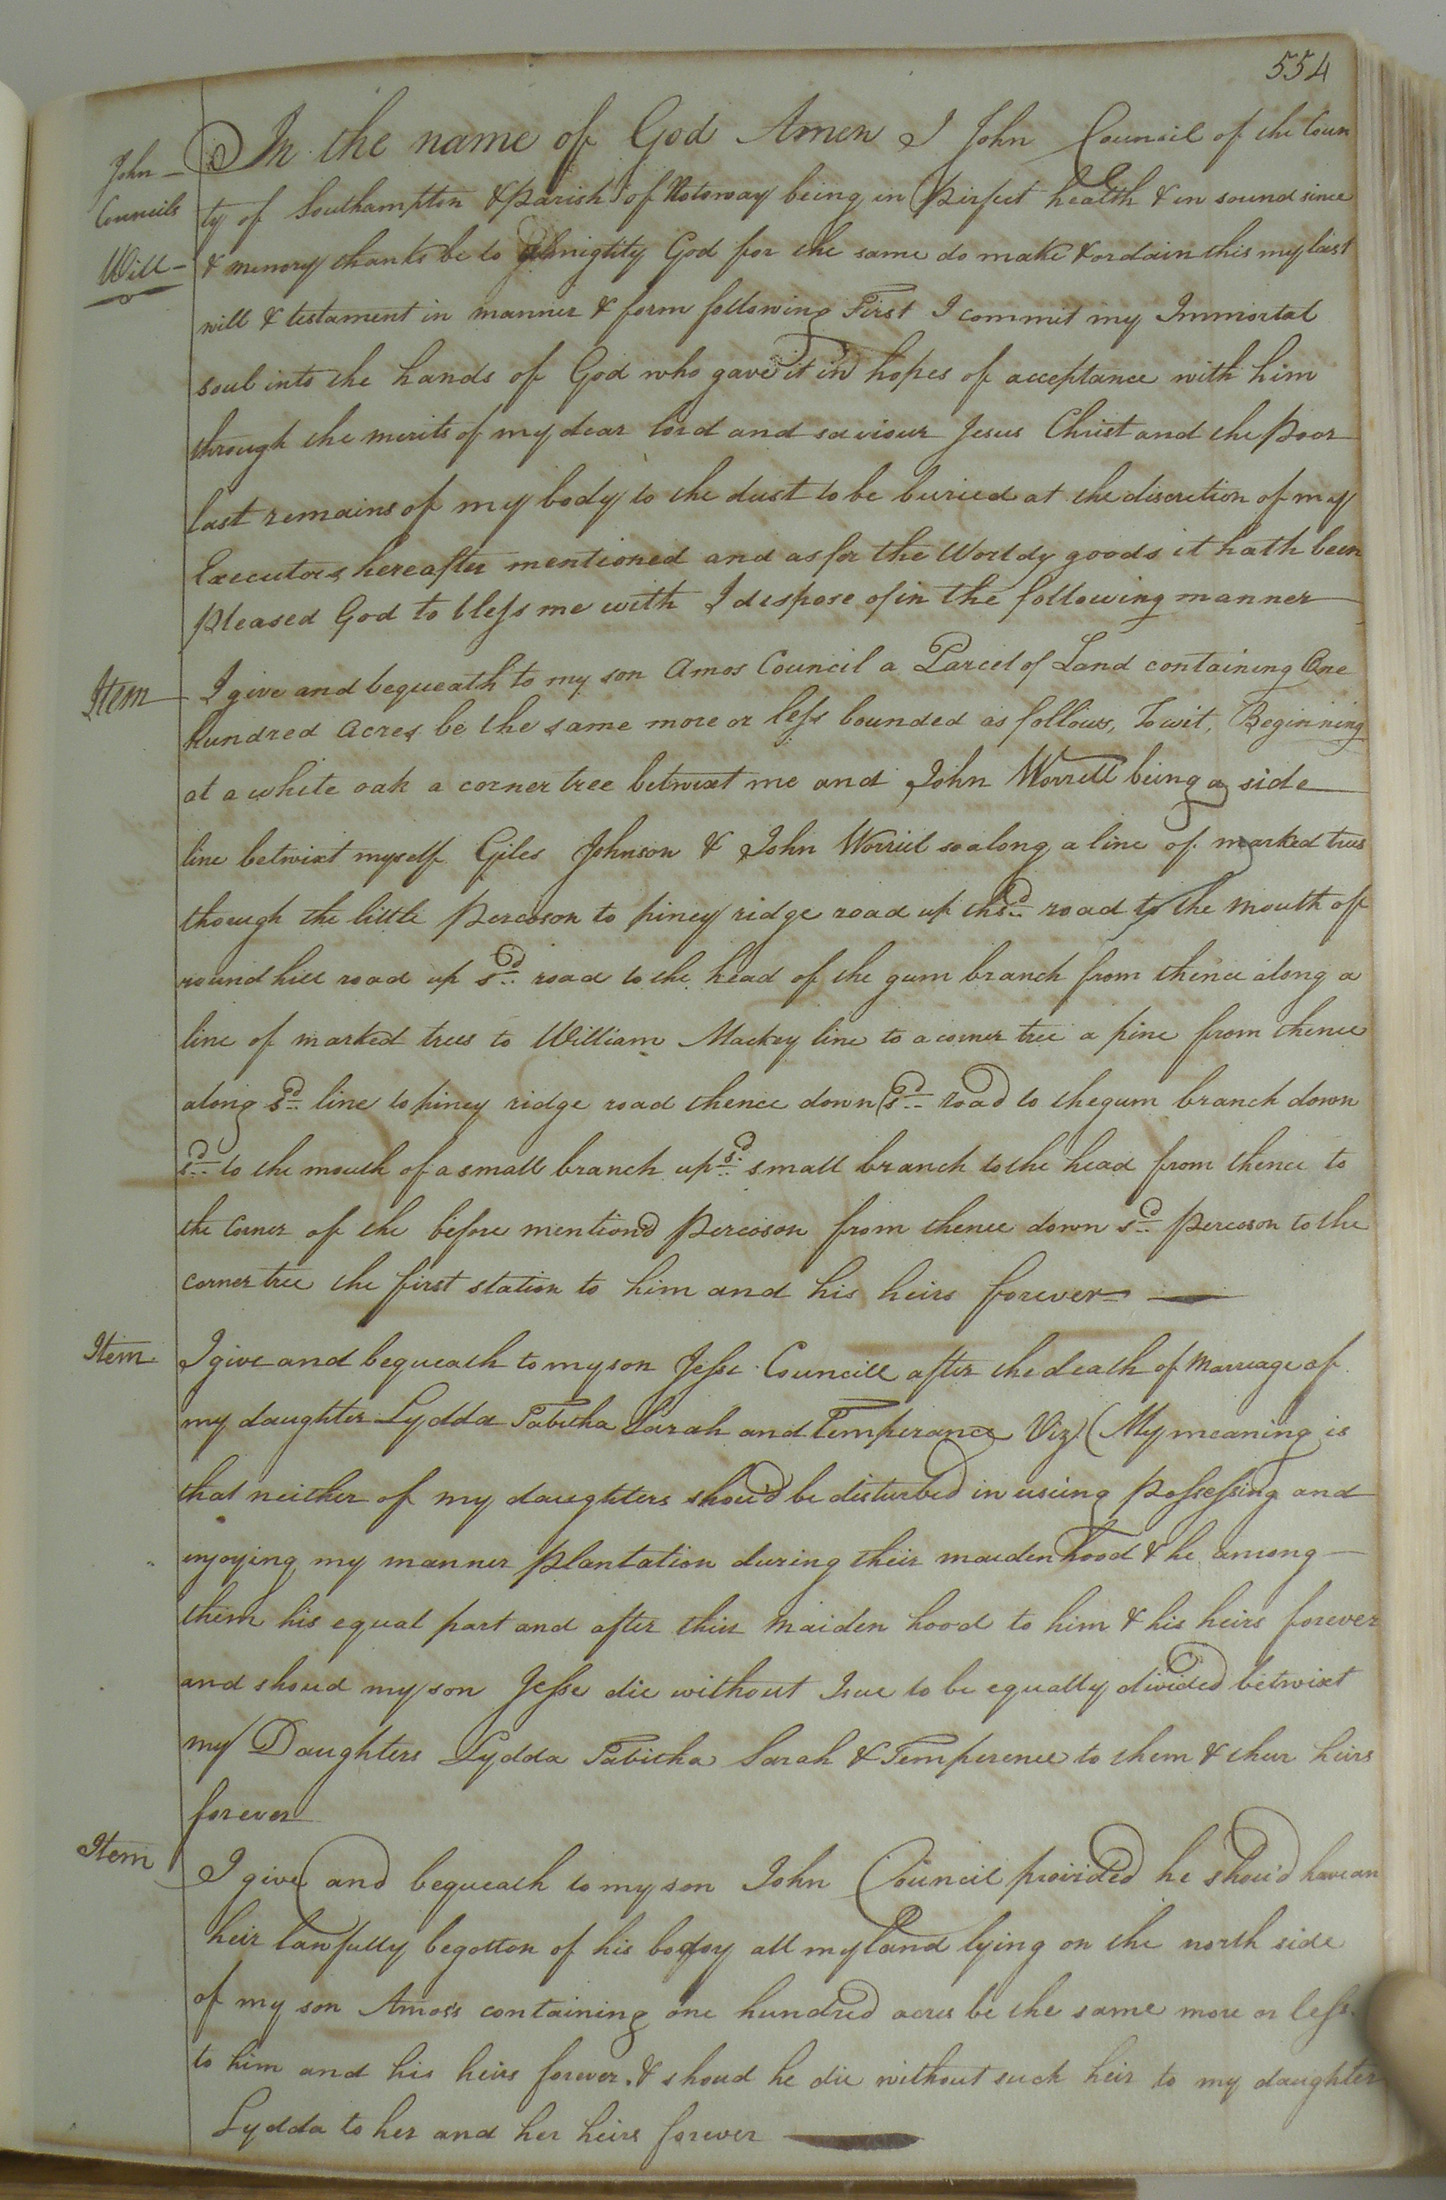 554
John
Councils
Will
In the name of God Amen I John Council of the Coun
ty of Southampton & Parish of Notoway being in Pirfect health & in sound since
& memory thanks be to almightity God for the same do make & ordain this my last
will & testament in manner & form following First I commit my Immortal
soul into the hands of God who gave it in hopes of acceptance with him
through the merits of my dear lord and saviour Jesus Christ and the Poor
last remains of my body to the dust to be buried at the discretion of my
Executors hereafter mentioned and as for the Worldy goods it hath been
pleased God to bless me with I dispose of in the following manner
Item I give and bequeath to my son Amos Council a Parcel of Land containing One
hundred Acres be the same more or less bounded as follows, Towit, Beginning
at a white oak a corner tree betwixt me and John Worrell being a side
line betwixt myself Giles Johnson & John Worriel so along a line of marked trees
though the little Percoson to piney ridge road up th sd road to the mouth of
round hill road up sd road to the head of the gum branch from thence along a
line of marked trees to William Mackey line to a corner tree a pine from thence
along sd line to piney ridge road thence down sd road to the gum branch down
sd to the mouth of a small branch up sd small branch to the head from thence to
the corner of the before mention'd Percoson from thence down sd Percoson to the
corner tree the first station to him and his heirs forever
Item I give and bequeath to my son Jesse Councill after the death of Marriage of
my daughter Lydda Tabitha Sarah and Temperance Viz (My meaning is
that neither of my daughters shou'd be disturbed in using Possessing and
injoying my manner Plantation during their maiden hood & he among
them his equal part and after their maiden hood to him & his heirs forever
and shoud my son Jesse die without Isue to be equally divided betwixt
my Daughters Lydda Tabitha Sarah & Temperence to them & their heirs
forever
Item I give and bequeath to my son John Council provided he shou'd have an
heir lawfully begotton of his body all my land lying on the north side
of my son Amos's containing one hundred acres be the same more or less
to him and his heirs forever & shoud he die without such heir to my daughter
Lydda to her and her heirs forever